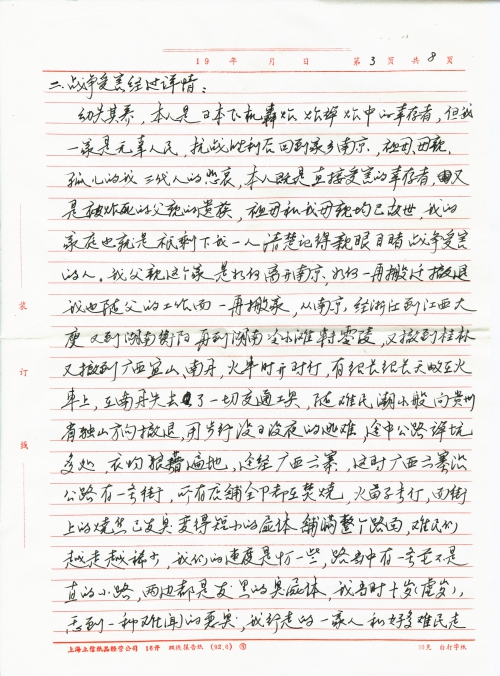 19 年 月 日 第 3 页 共 8 页
二.战争受害经过详情:
幼失其养,本人是日本飞机轰炸 炸弹炸中的幸存者,但我
一家是无辜人民,抗战胜利后回到家乡南京,祖母,母亲,
孤儿的我三代人的悲哀,本人既是直接受害的幸存者,又
是被炸死的父亲的遗族,祖母和我母亲均已故世,我的
家庭也就是祇剩下我一人清楚记得亲眼目睹战争受害
的人。我父亲这个家是如何离开南京,如何一再搬过 撤退
我也随父的工作而一再搬家,从南京,经浙江到江西大
庾 又到湖南衡阳 再到湖南冷水滩 零陵,又撤到桂林
又撤到广西宜山、南丹,火车时开时停,有很长很长天的在火
车上,在南丹失去了一切交通工具,随难民潮水般向贵州
省独山方向撤退,用步行没日没夜的逃难,途中公路弹坑
多处 衣物狼藉遍地,途经广西六寨,这时广西六寨沿
公路有一条街,所有店铺全部都在焚烧,火苗子专行,而街
上的烧焦已发臭变得短小的尸体 铺满整个路面,难民们
越走越稀少,我们的速度是快一些,路当中有一条并不是
直的小路,两边都是发黑的臭尸体,我当时十岁(虚岁),
闻到一种难闻的恶臭,我行走的一家人和好多难民走
装
订
线
上海立信纸品经营公司 16开 双线报告纸 (92.6)